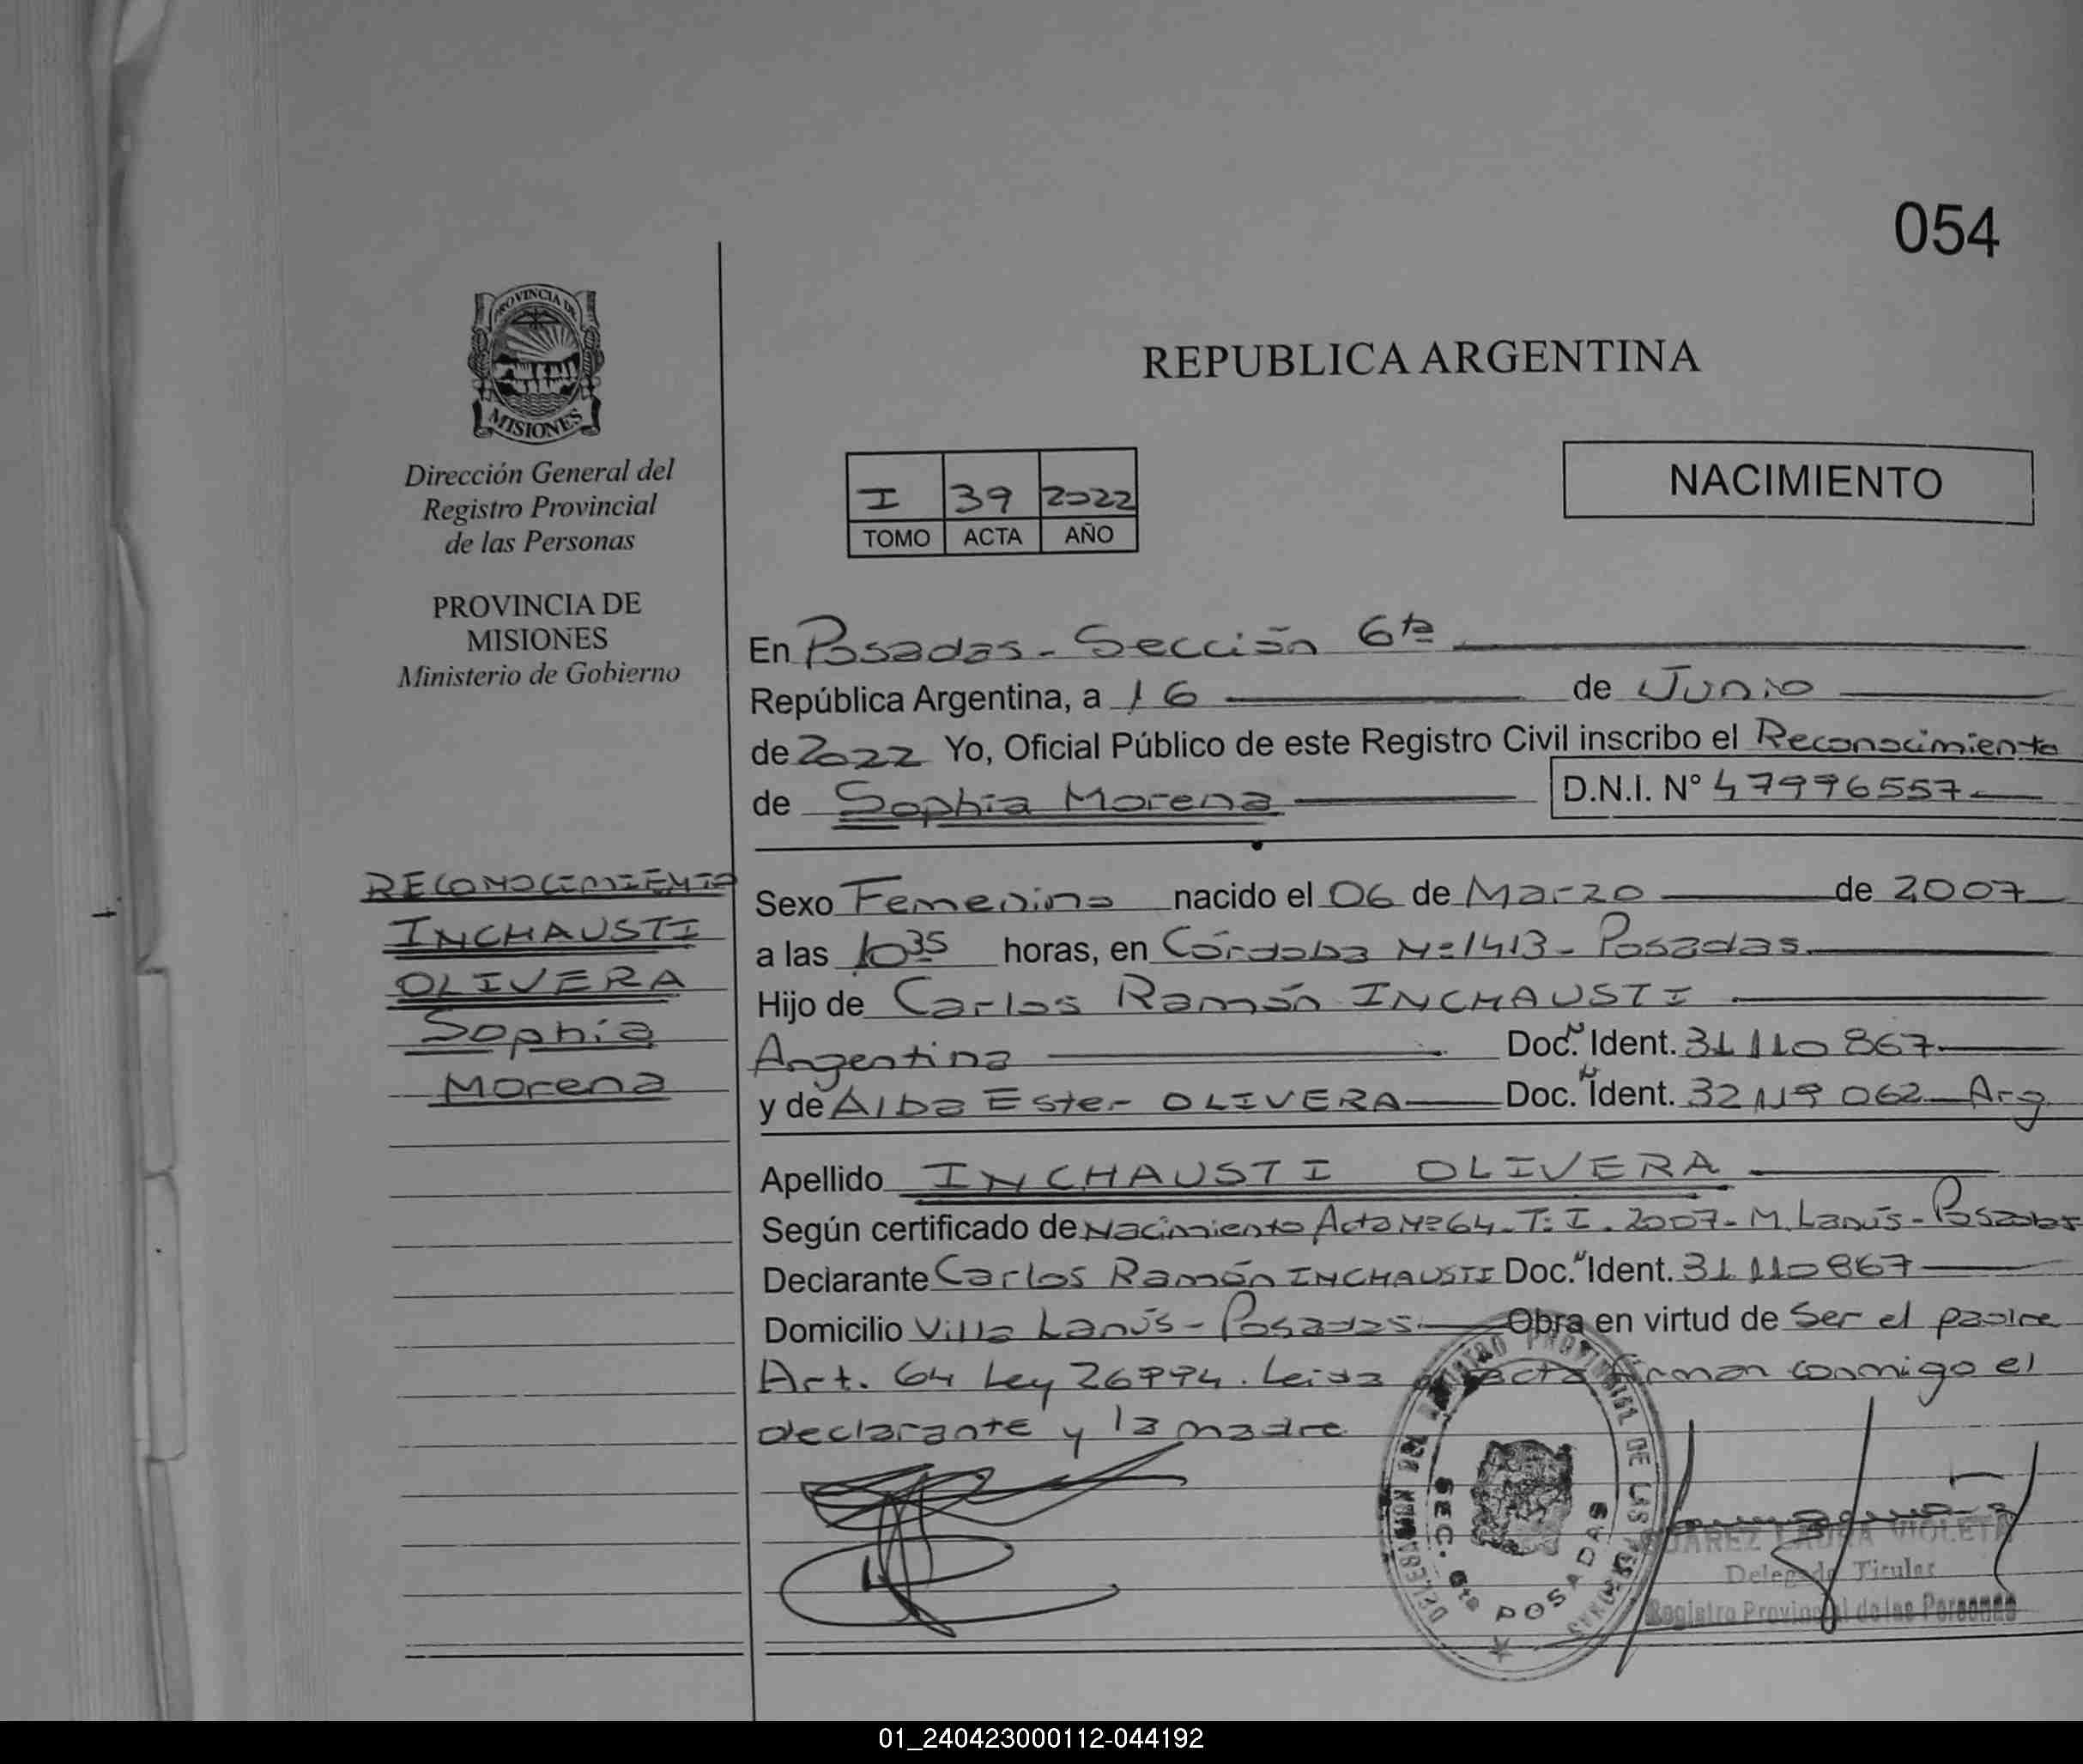 054
PROVINCIA DE
MISIONES
Dirección General del
Registro Provincial
de las Personas
PROVINCIA DE
MISIONES
Ministerio de Gobierno
REPUBLICA ARGENTINA
I 39 2022
TOMO ACTA AÑO
NACIMIENTO
En Posadas - Sección 6ta
República Argentina, a 16 de Junio
de 2022 Yo, Oficial Público de este Registro Civil inscribo el Reconocimiento
de Sophia Morena D.N.I. Nº 47996557
RECONOCIMIENTO
INCHAUSTI
OLIVERA
Sophia
Morena
Sexo Femenino nacido el 06 de Marzo de 2007
a las 10 35 horas, en Córdoba Nº 1413 - Posadas
Hijo de Carlos Ramón INCHAUSTI
Argentina Doc. N Ident. 31 110 867
y de Alba Ester OLIVERA Doc. N Ident. 32 119 062 Arg
Apellido INCHAUSTI OLIVERA
Según certificado de Nacimiento Acta Nº 64 - T: I. 2007 - M. Lanús - Posadas
Declarante Carlos Ramón INCHAUSTI Doc. N Ident. 31 110 867
Domicilio Villa Lanús - Posadas Obra en virtud de ser el padre
Art. 64 Ley 26994. Leida el acta firman conmigo el
declarante y la madre
DELEGACION DEL REGISTRO PROVINCIAL DE LAS PERSONAS
SEC. 6ta POSADAS
SUAREZ LAURA VIOLETA
Delegada Titular
Registro Provincial de las Personas
01_240423000112-044192